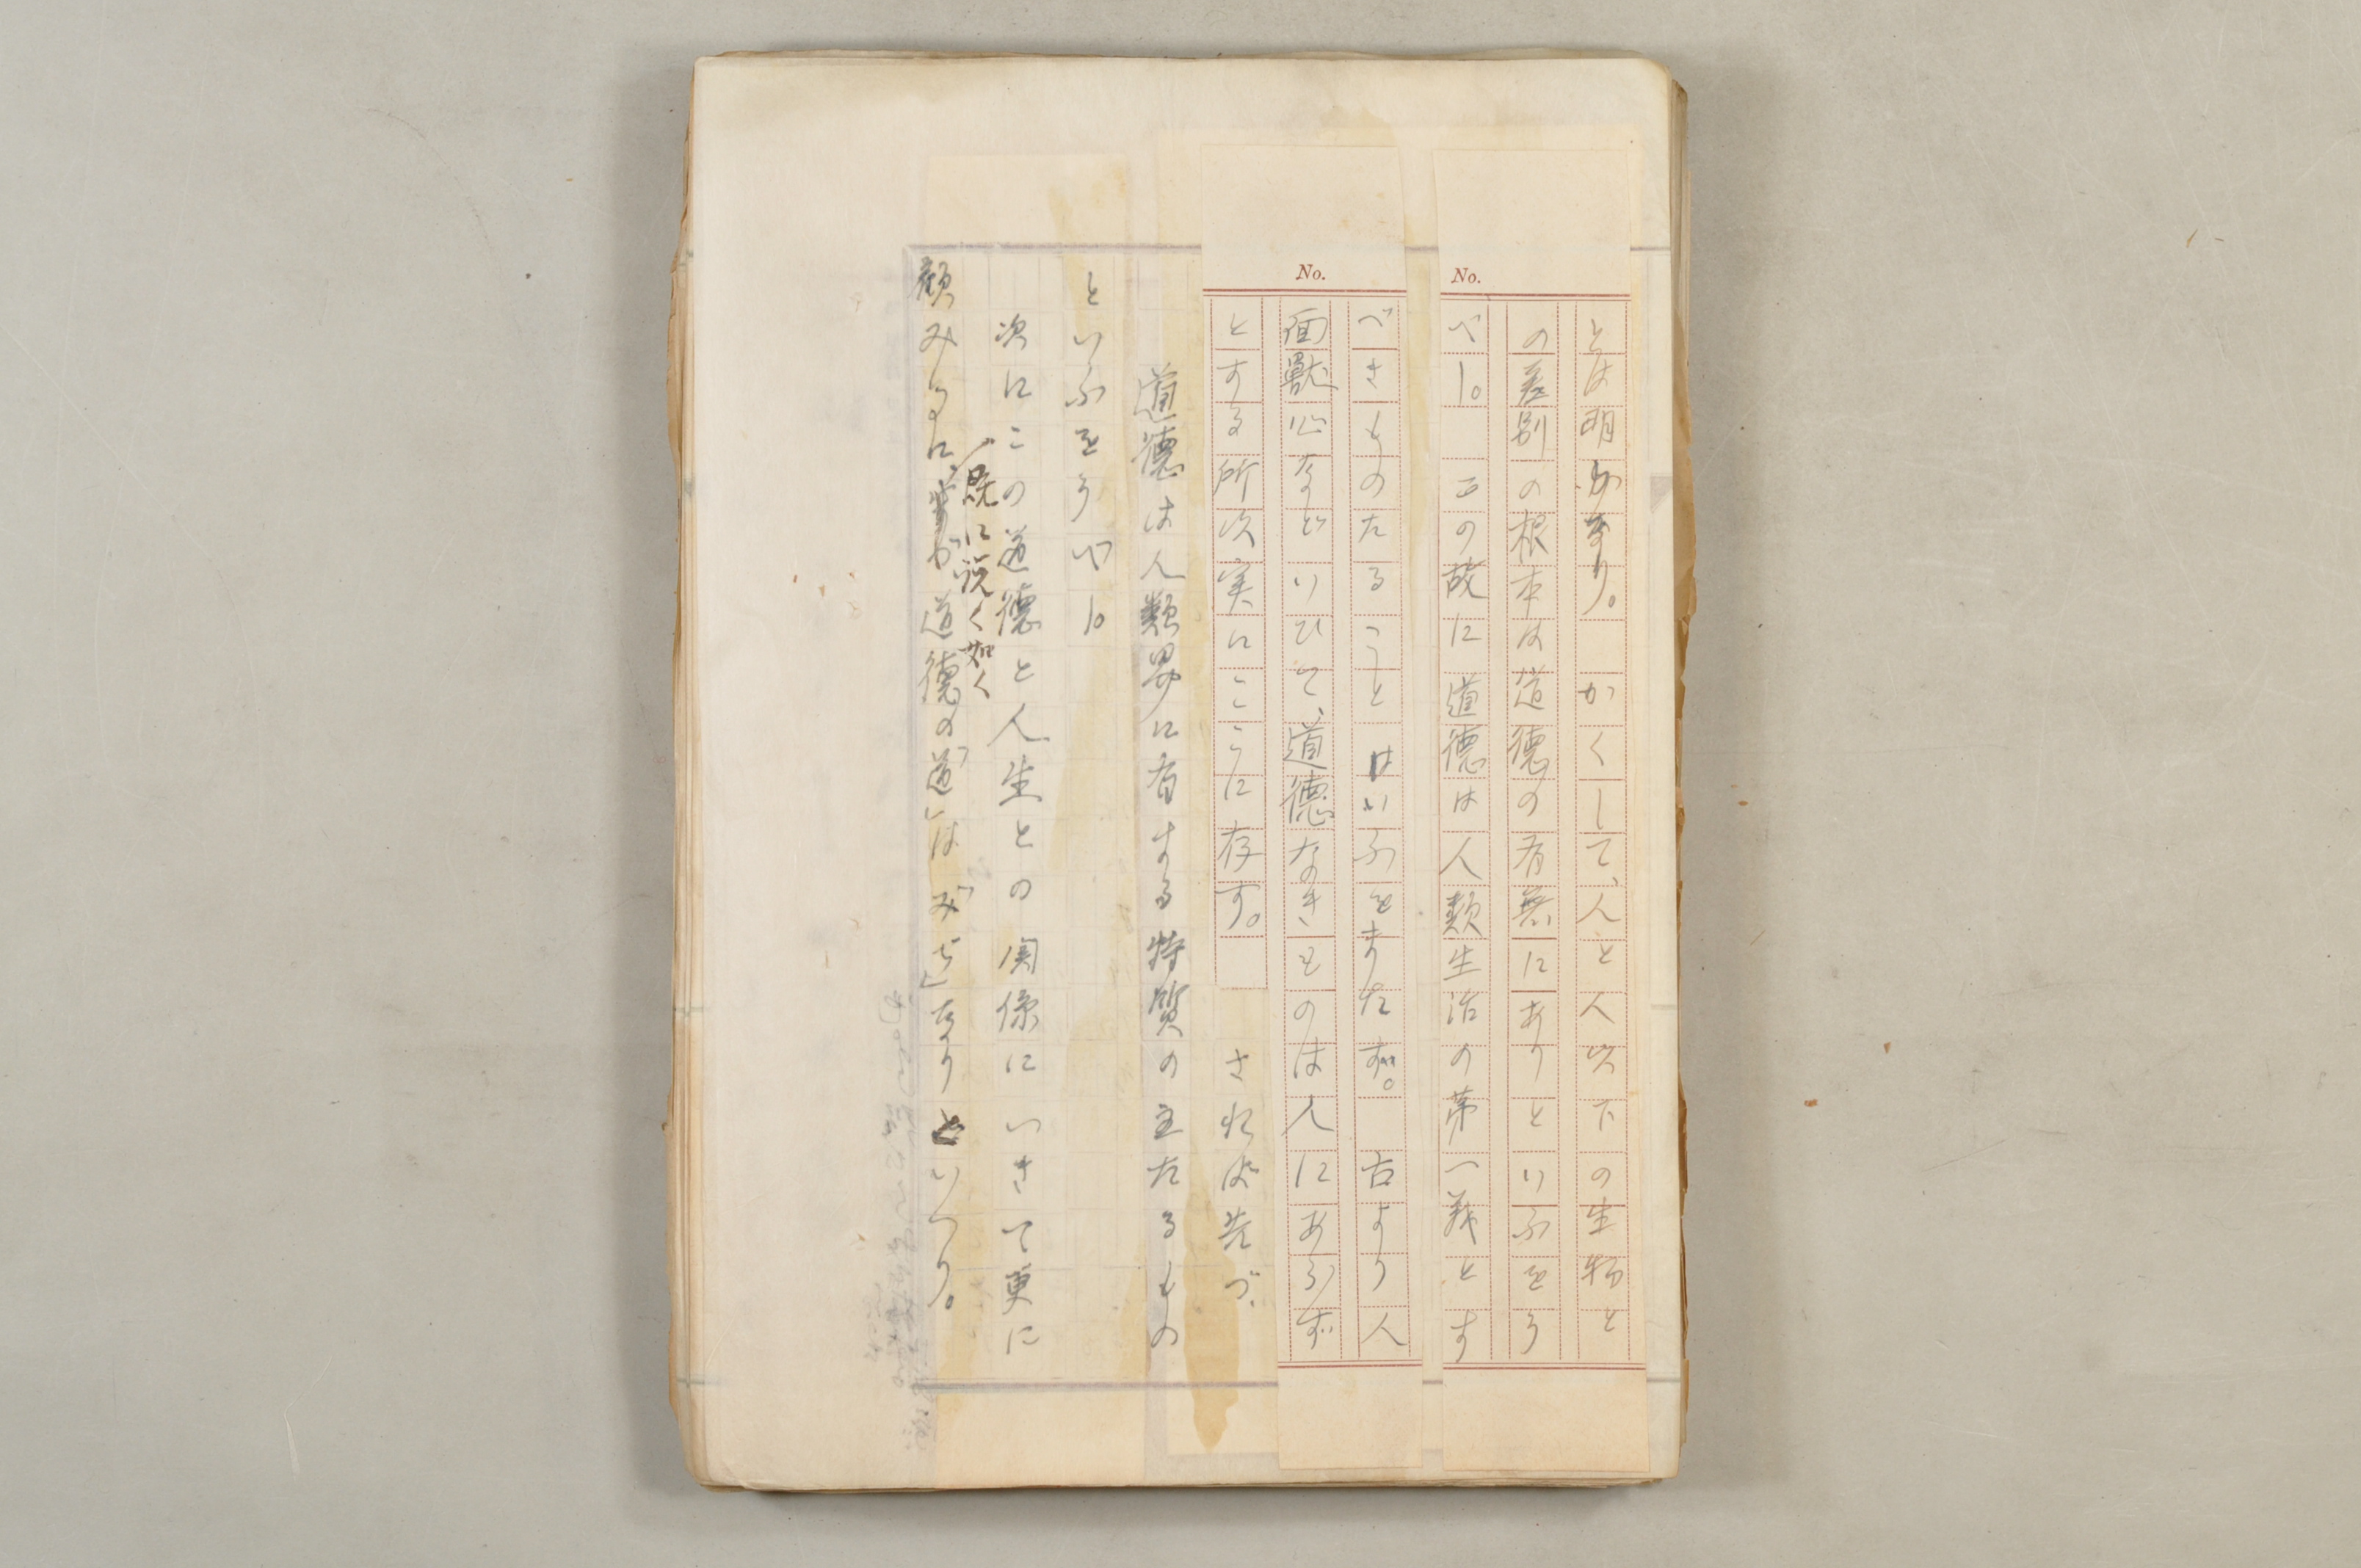 No.
とは明かなり。かくして、人と人以下の生物と
の差別の根本は道徳の有無にありといふをう
べし。この故に道徳は人類生活の第一義とす
No.
べきものたることはいふをまたず。古より人
面獣心などいひて、道徳なきものは人にあらず
とする所以実にこゝに存す。されば先づ、
道徳は人類界に有する特質の主たるもの
といふをうべし。
次にこの道徳と人生との関係にいきて更に
顧みるに、
既に説く如く
が道徳の「道」は「みち」なりといへり。